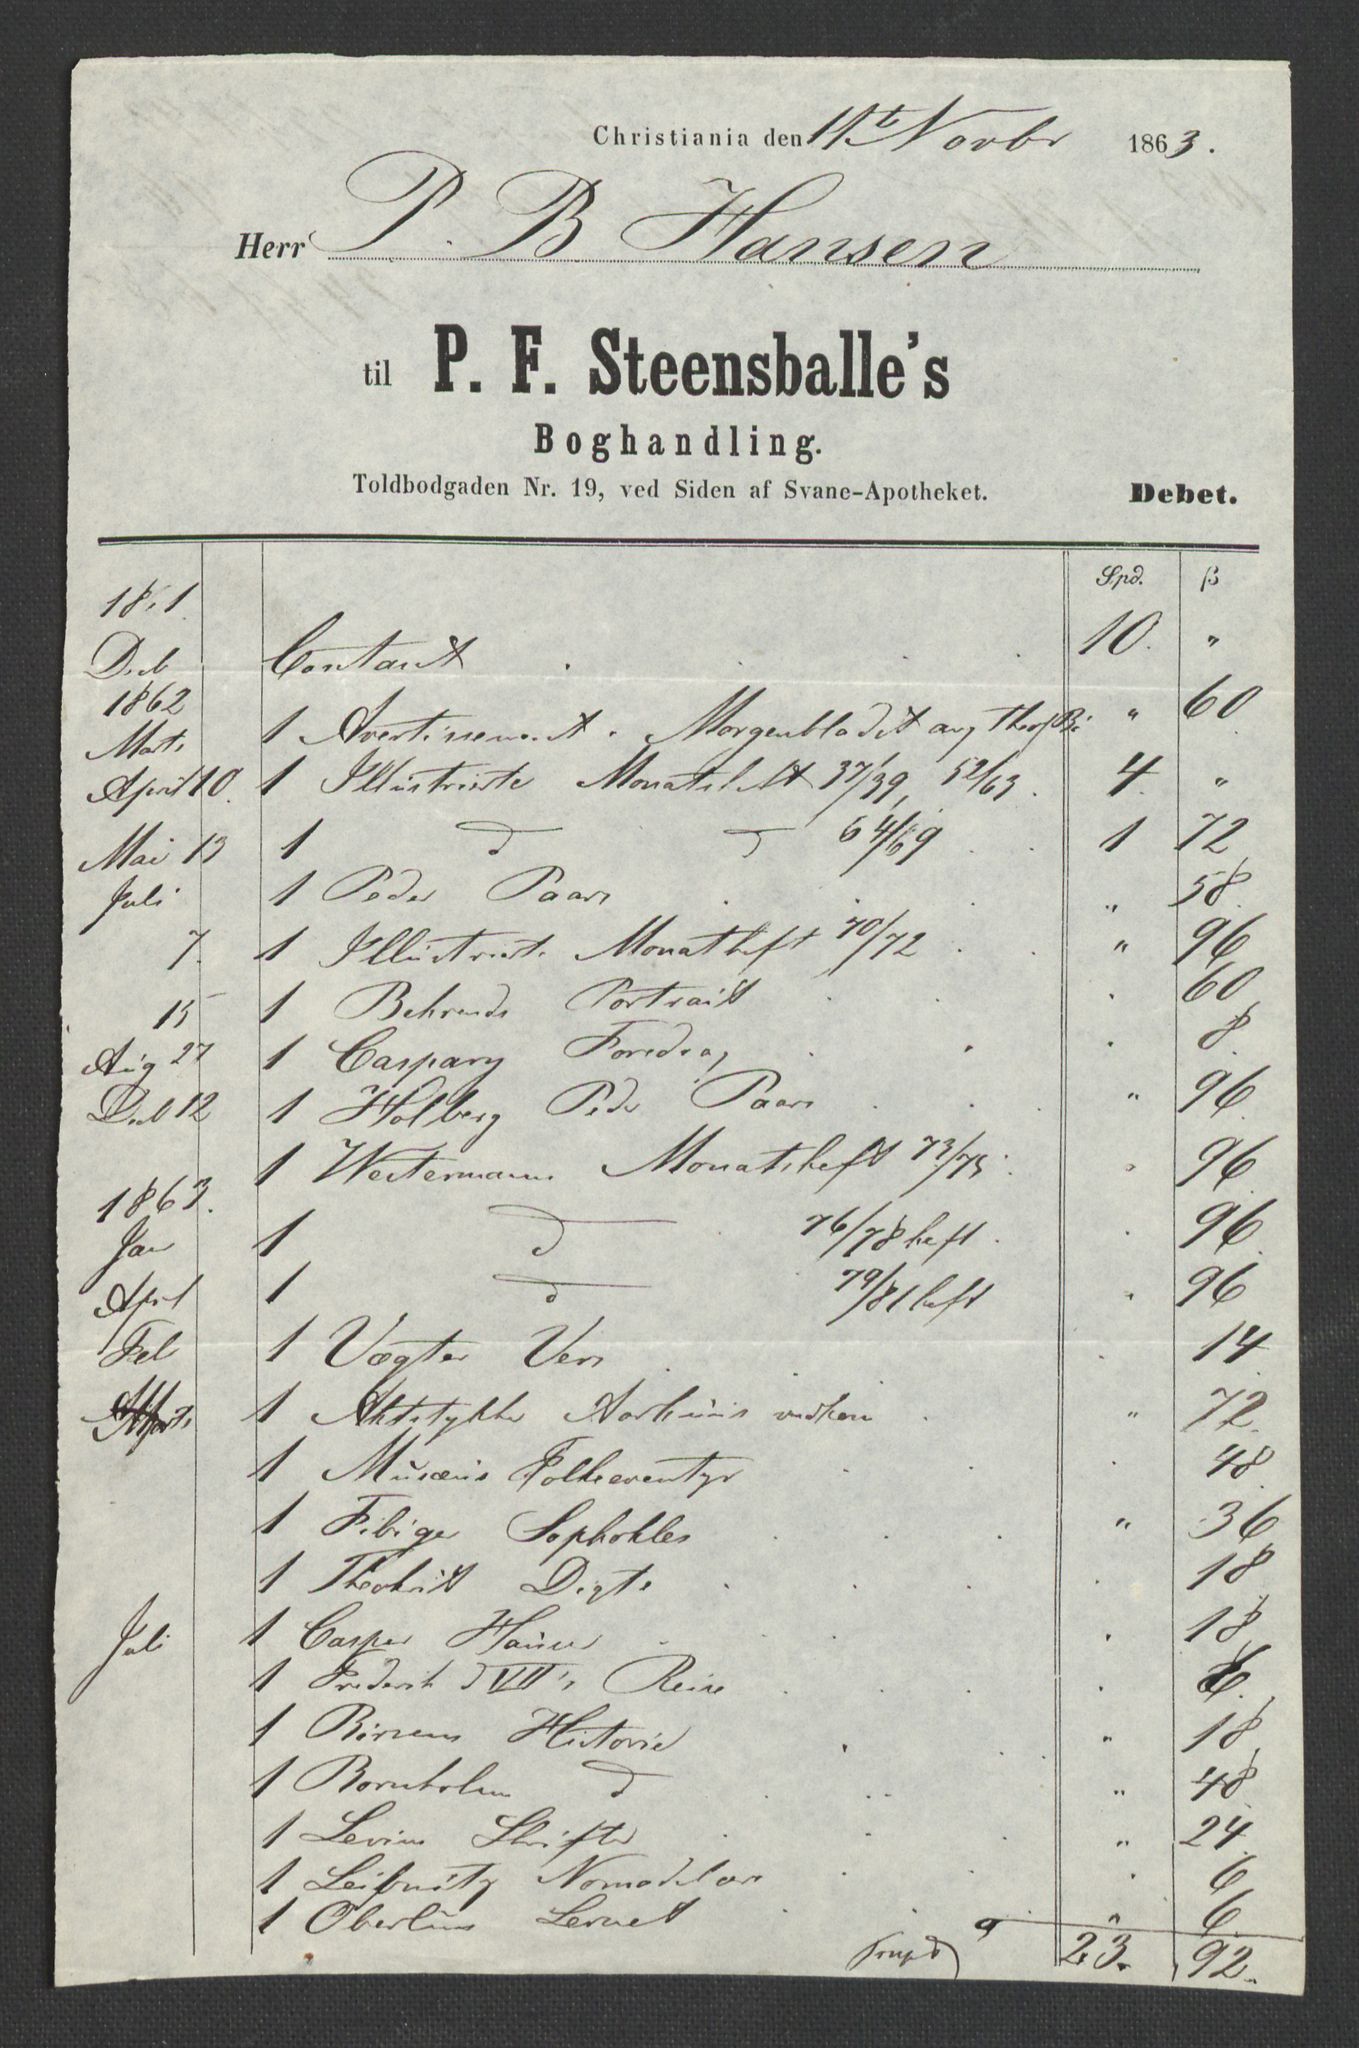 Christiania den 11t Novbr 1863.
Herr P. B Hansen
til P. F. Steensballe's
Boghandling.
Toldbodgaden Nr. 19, ved Siden af Svane-Apotheket. Debet.
Spd. ß
1861
Decb Contant 10. "
1862
Marts 1 Avertissement . Morgenbladet ang " 60
April 10. 1 Illustrirte Monatsheft 37/39, 52/63. 4. "
Mai 13 1 d d 64/69 1 72
Juli 1 Peder Paars " 58
7. 1 Illustrirte Monatheft 70/72 " 96
15 1 Behrends Portrait 60
Aug 27 1 Caspary Foredrag 8
Decb 12 1 Holberg Peder Paars " 96
1 Westermanns Monatsheft 73/75 " 96
1863.
Jan 1 d 76/78 heft . 96
April 1 d 79/81 heft " 96
Feb 1 Vægter Vers 14
Marts 1 Aktstykker Aarhuus " 72
1 Musæus Folkeeventyr 48
1 Fibiger Sophokles " 36
1 Theokrit Digte 18
Juli 1 Casper Hauser 18
1 Frederik d VII's Reise 6
1 Börsens Historie " 18
1 Bornholms d " 48
1 Levins Skrifter " 24
1 Leibnitz 6
1 Oberlins Levnet " 6
23. 92.